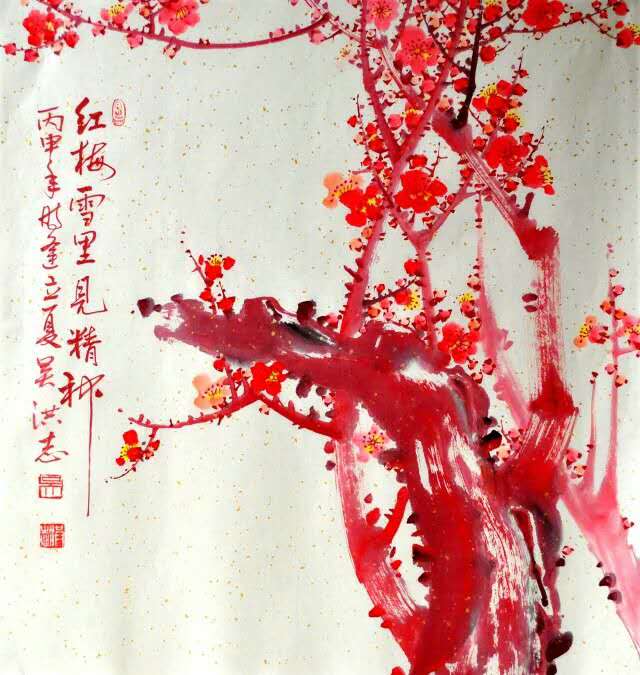 红梅雪里见精神
丙申年时逢立夏吴洪志